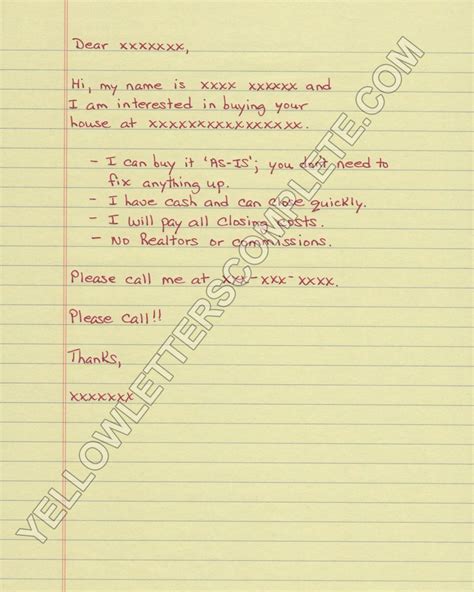 Dear xxxxxxx,
Hi, my name is xxxx xxxxxx and
I am interested in buying your
house at xxxxxxxxxxxxxxxx.
- I can buy it 'AS-IS'; you don't need to
fix anything up.
- I have cash and can close quickly.
- I will pay all closing costs.
- No Realtors or commissions.
Please call me at xxx-xxx-xxxx.
Please call!!
Thanks,
xxxxxxx
YELLOWLETTERSCOMPLETE.COM